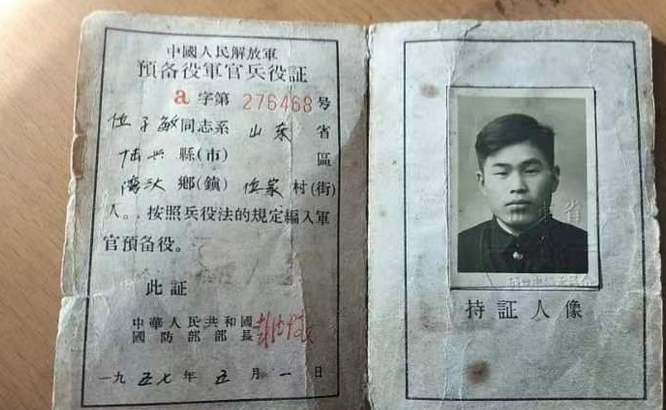 中國人民解放軍
預备役軍官兵役証
a 字第 276468 号
伍子敏同志系 山东 省
縣(市) 區
鄉(鎮) 伍家 村(街)
人。按照兵役法的規定編入軍
官預备役。
此証
中華人民共和國
國防部部長 彭德怀
一九五七年五月一日
省
持証人像